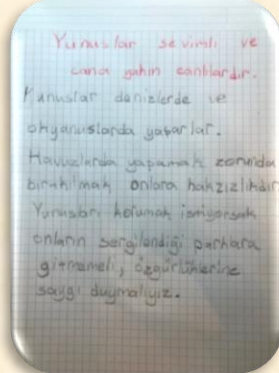 Yunuslar sevimli ve
cana yakın canlılardır.
Yunuslar denizlerde ve
okyanuslarda yaşarlar.
Havuzlarda yaşamak zorunda
bırakılmak onlara hakzızlıkdır.
Yunusları korumak istiyorsak
onların sergilendiği parklara
gitmemeli, özgürlüklerine
saygı duymalıyız.